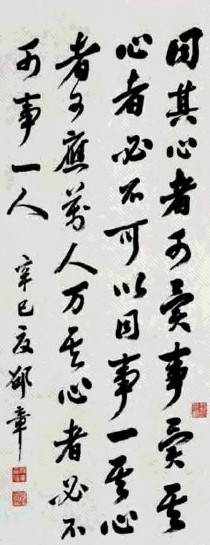 同其心者可異事異其
心者必不可以同事一其心
者可應萬人万其心者必不
可事一人
辛巳夏邵章